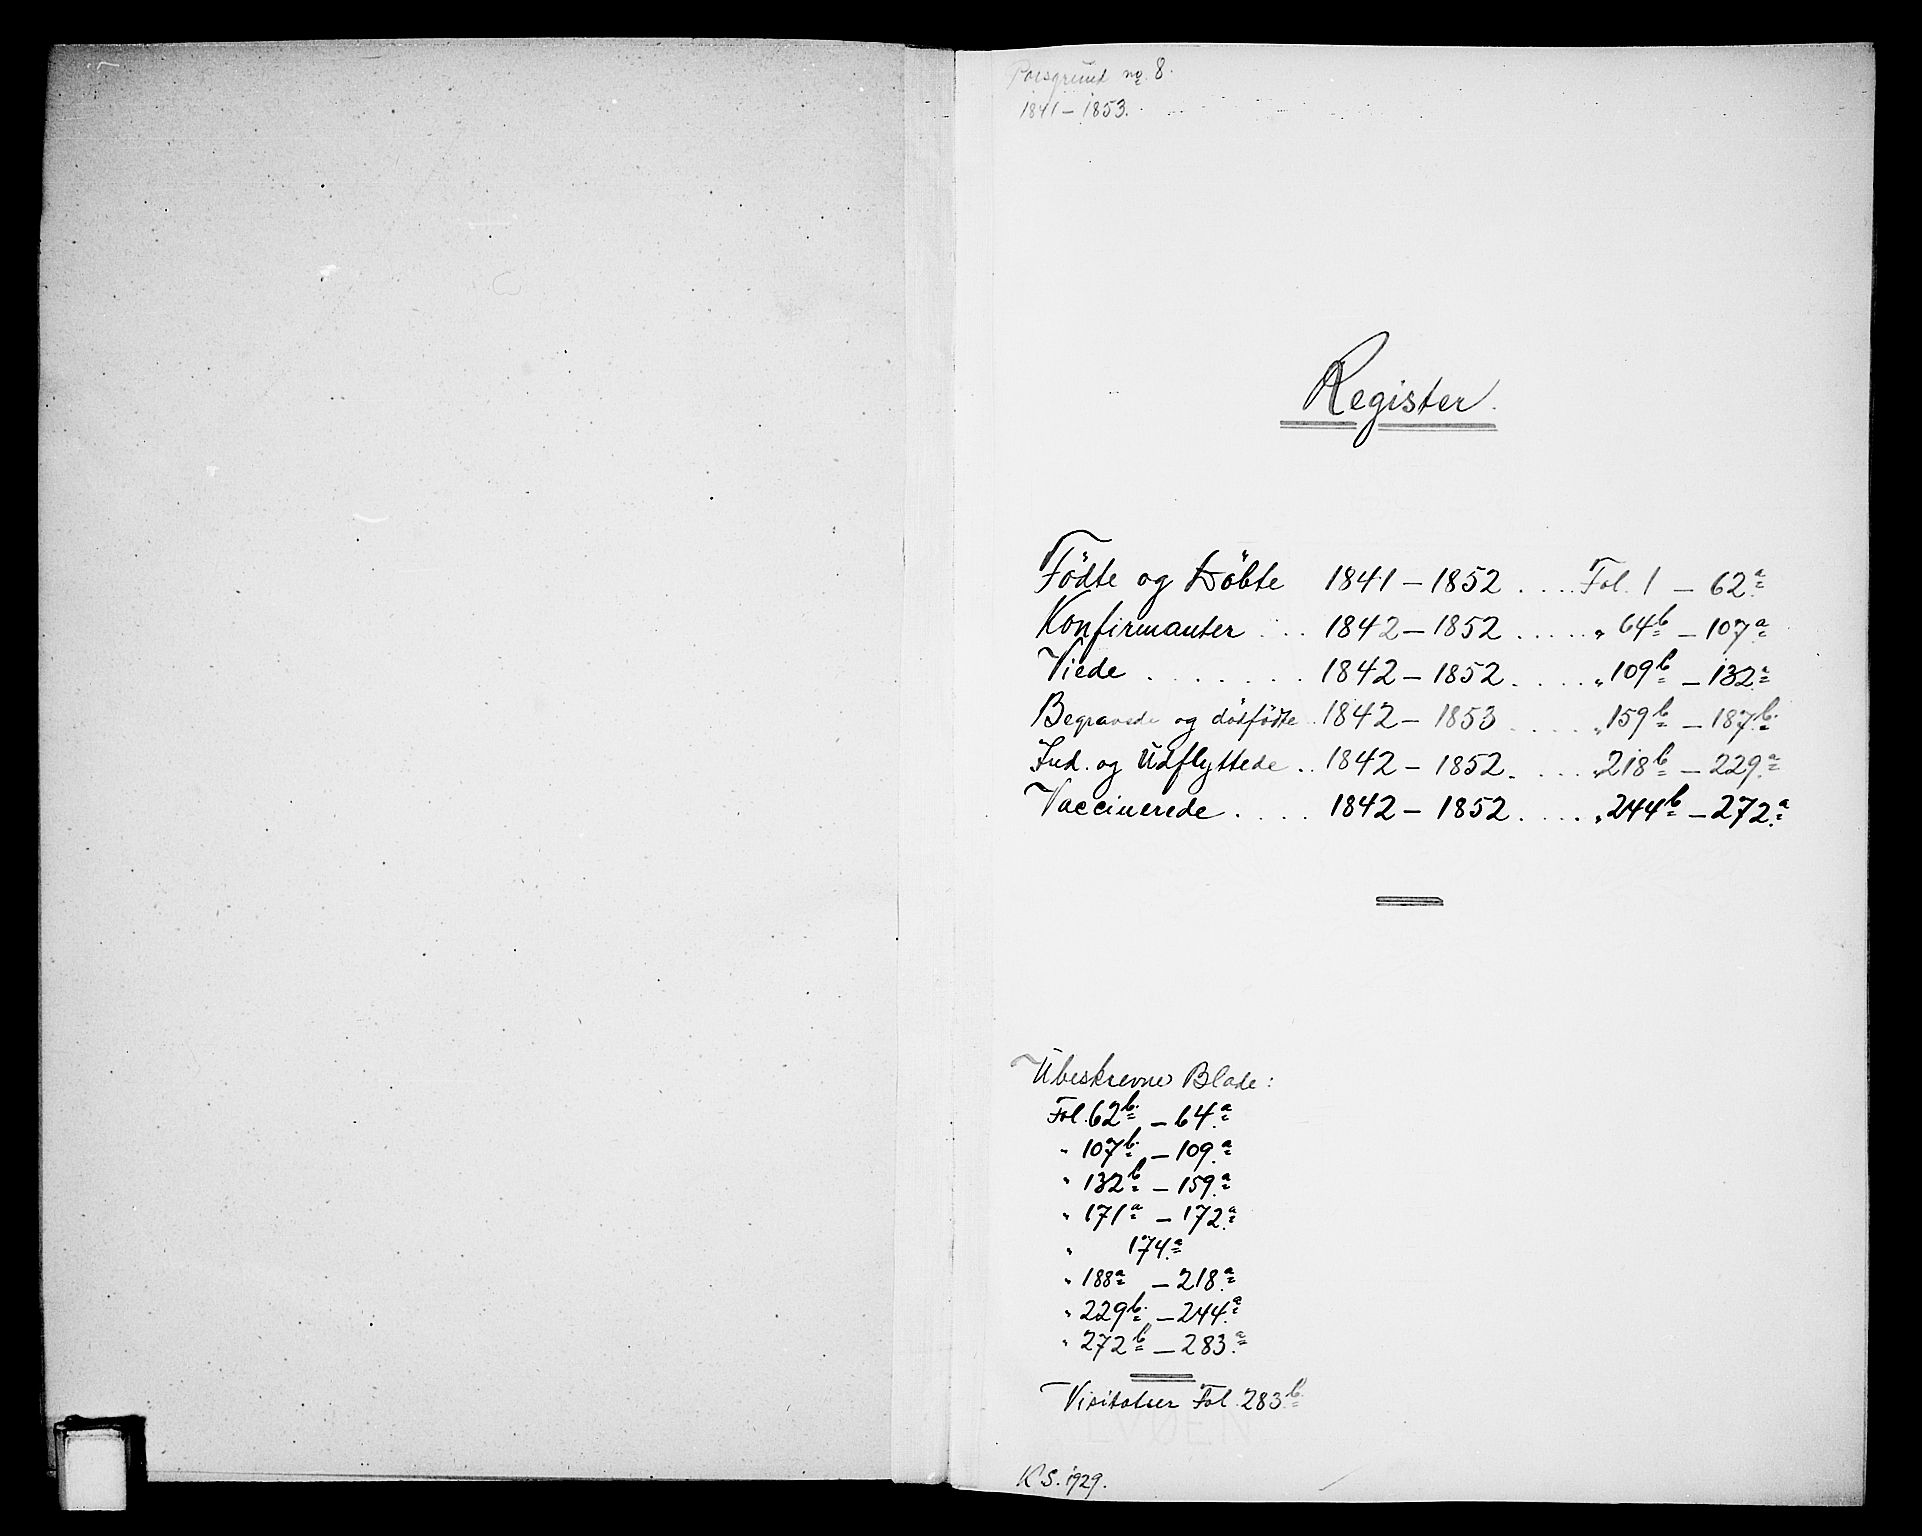 Porsgrund no 8.
1841 – 1853.
Register.
Födte og Döbte 1841 – 1852 .... Fol. 1 – 62a
Konfirmanter ... 1842 – 1852 ..... „ 64b – 107a
Viede ....... 1842 – 1852 ..... „ 109b – 132a
Begravede og dödfödte .. 1842 – 1853 ..... „ 159b – 187b.
Ind. og Udflyttede .. 1842 – 1852 ..... „ 218b – 229a
Vaccinerede .... 1842 – 1852 ..... „ 244b – 272a
Ubeskrevne Blade:
Fol. 62b. – 64a
„ 107b. – 109a
„ 132b – 159a
„ 171a – 172a
„ 174a
„ 188a – 218a
„ 229b. – 244a
„ 272b – 283a
Visitatser Fol. 283b.
K S. 1929.